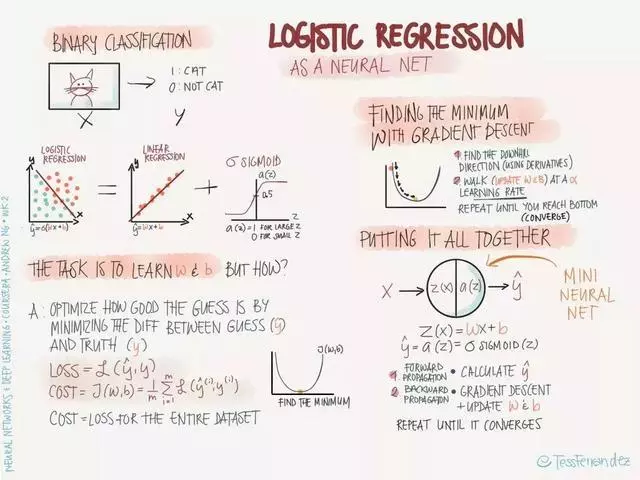 LOGISTIC REGRESSION
AS A NEURAL NET
BINARY CLASSIFICATION
1: CAT
0: NOT CAT
X
Y
LOGISTIC
REGRESSION
y
x
ŷ=σ(wx+b)
=
LINEAR
REGRESSION
y
x
ŷ=wx+b
+
σ SIGMOID
a(z)
0.5
z
a(z)=1 FOR LARGE Z
0 FOR SMALL Z
THE TASK IS TO LEARN w & b BUT HOW?
A: OPTIMIZE HOW GOOD THE GUESS IS BY
MINIMIZING THE DIFF BETWEEN GUESS (ŷ)
AND TRUTH (y)
LOSS = L(ŷ,y)
COST = J(w,b) = 1/m Σ i=1 m L(ŷ(i),y(i))
COST = LOSS FOR THE ENTIRE DATASET
J(w,b)
FIND THE MINIMUM
FINDING THE MINIMUM
WITH GRADIENT DESCENT
1 FIND THE DOWNHILL
DIRECTION (USING DERIVATIVES)
2 WALK (UPDATE W & B) AT A α
LEARNING RATE
REPEAT UNTIL YOU REACH BOTTOM
(CONVERGE)
PUTTING IT ALL TOGETHER
X → z(x) a(z) → ŷ
MINI
NEURAL
NET
z(x) = wx+b
ŷ = a(z) = σ SIGMOID(z)
1 FORWARD
PROPAGATION • CALCULATE ŷ
2 BACKWARD
PROPAGATION • GRADIENT DESCENT
+ UPDATE w & b
REPEAT UNTIL IT CONVERGES
NEURAL NETWORKS & DEEP LEARNING · COURSERA · ANDREW NG · WK:2
@TessFerrandez